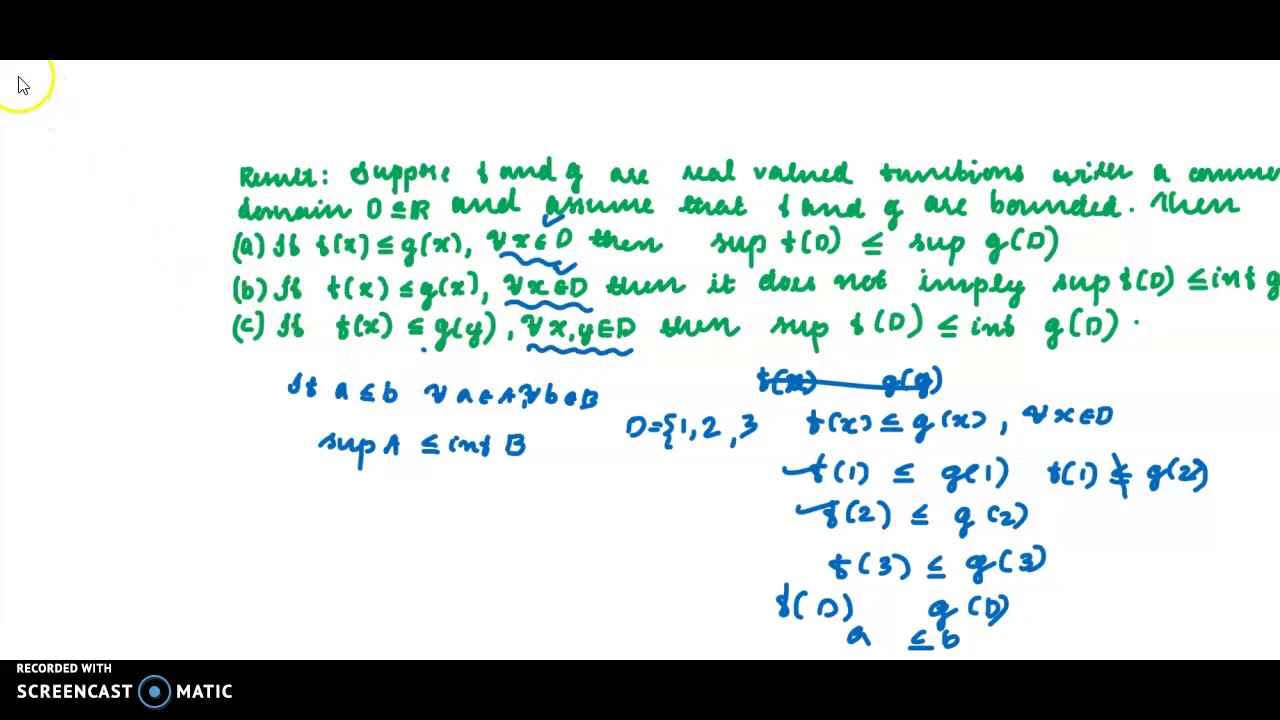 Result: Suppose f and g are real valued functions with a comm
domain D ⊆ R and assume that f and g are bounded. Then
(a) If f(x) ≤ g(x), ∀x∈D then sup f(D) ≤ sup g(D)
(b) If f(x) ≤ g(x), ∀x∈D then it does not imply sup f(D) ≤ inf g
(c) If f(x) ≤ g(y), ∀x,y∈D then sup f(D) ≤ inf g(D).
If a ≤ b ∀a∈A, ∀b∈B
sup A ≤ inf B
f(x) g(y)
D={1,2,3
f(x) ≤ g(x), ∀x∈D
f(1) ≤ g(1) f(1) ≰ g(2)
f(2) ≤ g(2)
f(3) ≤ g(3)
f(D) g(D)
a ≤ b
RECORDED WITH
SCREENCAST MATIC